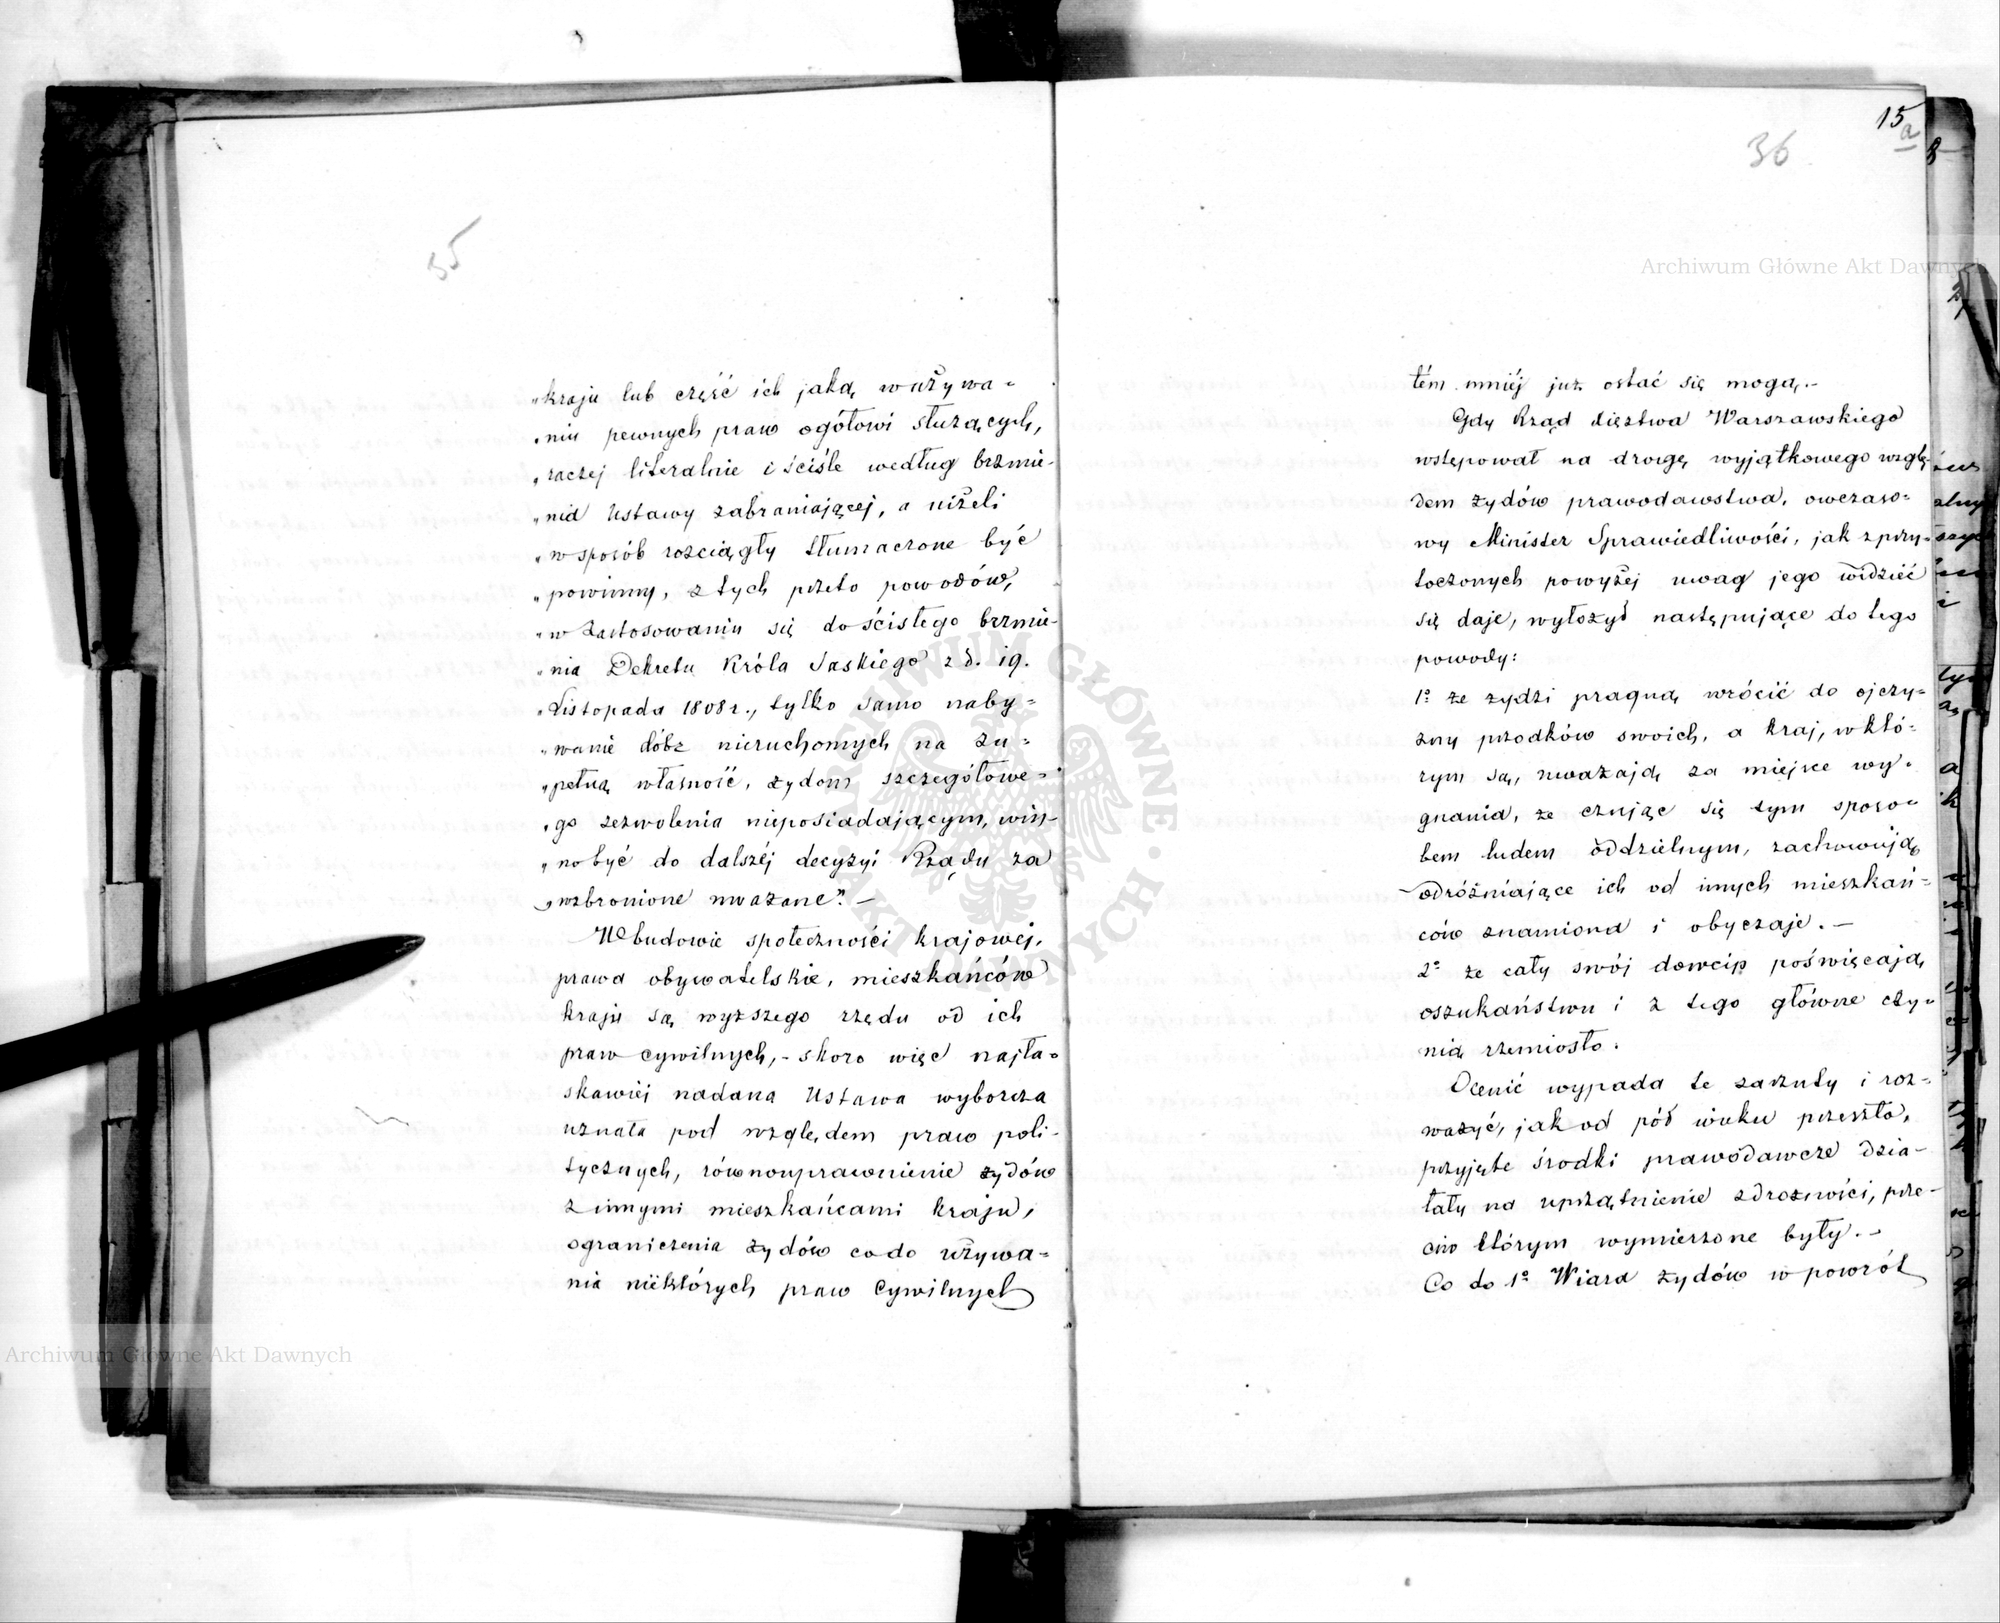 35
„kraju lub część ich jaką w używa-
„niu pewnych praw ogółowi służących,
„raczej literalnie i ściśle według brzmie-
„nia Ustawy zabraniającej, a niżeli
„w sposób rozciągły tłumaczone być
„powinny, z tych przeto powodów,
„w zastosowaniu się do ścisłego brzmie-
„nia Dekretu Króla Saskiego z d. 19.
„Listopada 1808 r., tylko samo naby-
„wanie dóbr nieruchomych na zu-
„pełną własność, żydom szczegółowe-
„go zezwolenia nieposiadającym, win-
„no być do dalszéj decyzyi Rządu za
„wzbronione uważane". —
W budowie społeczności krajowej,
prawa obywatelskie, mieszkańców
kraju są wyższego rzędu od ich
praw cywilnych, - skoro więc najła-
skawiéj nadana Ustawa wyborcza
uznała pod względem praw poli-
tycznych, równouprawnienie żydów
z innymi mieszkańcami kraju,
ograniczenia żydów co do używa-
nia niektórych praw cywilnych
15
a
36
Archiwum Główne Akt Dawnych
tém mniéj już ostać się mogą. -
Gdy Rząd Xięztwa Warszawskiego
wstępował na drogę wyjątkowego wzglę-
dem żydów prawodawstwa, owczaso-
wy Minister Sprawiedliwości, jak z przy-
toczonych powyżéj uwag jego widzieć
się daje, wyłożył następujące do tego
powody:
1º że żydzi pragną wrócić do ojczy-
zny przodków swoich, a kraj, w któ-
rym są, uważają za miejsce wy-
gnania, że czując się tym sposo-
bem ludem oddzielnym, zachowują
odróżniające ich od innych mieszkań-
ców znamiona i obyczaje. —
2º że cały swój dowcip poświęcają
oszukaństwu i z tego główne czy-
nią rzemiosło.
Ocenić wypada te zarzuty i roz-
ważyć, jak od pół wieku przeszło,
przyjęte środki prawodawcze dzia-
łały na uprzątnienie zdrożności, prze-
ciw którym wymierzone były. -
Co do 1º Wiara żydów w powrót
ARCHIWUM GŁÓWNE · AKT DAWNYCH ·
Archiwum Główne Akt Dawnych